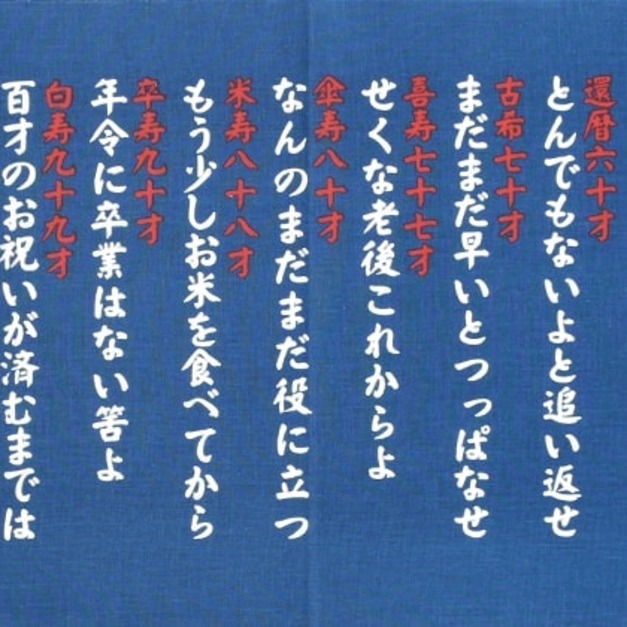 還暦六十才
とんでもないよと追い返せ
古希七十才
まだまだ早いとつっぱなせ
喜寿七十七才
せくな老後これからよ
傘寿八十才
なんのまだまだ役に立つ
米寿八十八才
もう少しお米を食べてから
卒寿九十才
年令に卒業はない筈よ
白寿九十九才
百才のお祝いが済むまでは